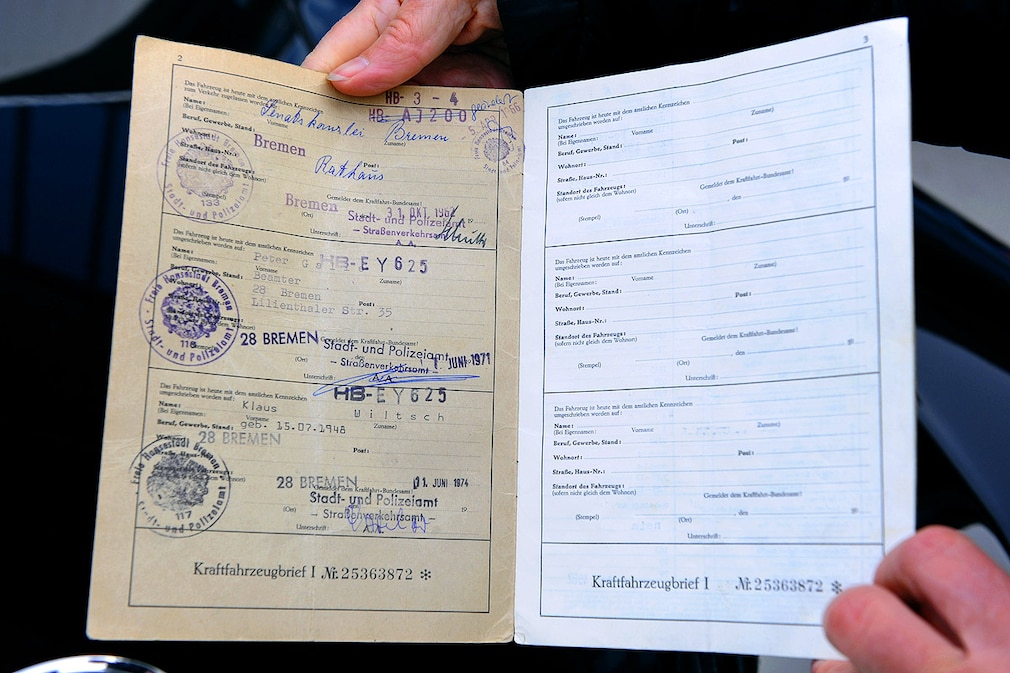 2
Das Fahrzeug ist heute mit dem amtlichen Kennzeichen
zum Verkehr zugelassen worden
HB-3-4
HB-AJ200 geändert
Name: Senatskanzlei Bremen
(Bei Eigennamen: Vorname Zuname)
Beruf, Gewerbe, Stand:
Wohnort: Bremen Post:
Straße, Haus-Nr.: Rathaus
Standort des Fahrzeugs:
(sofern nicht gleich dem Wohnort)
Gemeldet dem Kraftfahrt-Bundesamt?
Bremen 31. OKT. 1962 19
(Stempel) (Ort)
Stadt- und Polizeiamt
– Straßenverkehrsamt –
Unterschrift: A.A.
Freie Hansestadt Bremen
133
Stadt- und Polizeiamt
Das Fahrzeug ist heute mit dem amtlichen Kennzeichen
umgeschrieben worden auf:
HB-EY625
Name: Peter
(Bei Eigennamen: Vorname Zuname)
Beruf, Gewerbe, Stand: Beamter
Wohnort: 28 Bremen Post:
Lilienthaler Str. 35
Gemeldet dem Kraftfahrt-Bundesamt?
28 BREMEN Stadt- und Polizeiamt JUNI 1971
(Stempel) (Ort)
– Straßenverkehrsamt –
Unterschrift: A.A.
Freie Hansestadt Bremen
118
Stadt- und Polizeiamt
Das Fahrzeug ist heute mit dem amtlichen Kennzeichen
umgeschrieben worden auf:
HB-EY625
Name: Klaus Wiltsch
(Bei Eigennamen: Vorname Zuname)
Beruf, Gewerbe, Stand: geb. 15.07.1948
Wohnort: 28 BREMEN Post:
Straße, Haus-Nr.:
28 BREMEN 11. JUNI 1974
Gemeldet dem Kraftfahrt-Bundesamt?
Stadt- und Polizeiamt
(Ort) 19
– Straßenverkehrsamt –
Unterschrift: A.A.
Freie Hansestadt Bremen
117
Stadt- und Polizeiamt
Kraftfahrzeugbrief I Nr. 25363872 *
3
Das Fahrzeug ist heute mit dem amtlichen Kennzeichen
umgeschrieben worden auf:
Name:
(Bei Eigennamen: Vorname Zuname)
Beruf, Gewerbe, Stand:
Wohnort: Post:
Straße, Haus-Nr.:
Standort des Fahrzeugs:
(sofern nicht gleich dem Wohnort)
Gemeldet dem Kraftfahrt-Bundesamt?
, den 19
(Stempel) (Ort)
Unterschrift:
Das Fahrzeug ist heute mit dem amtlichen Kennzeichen
umgeschrieben worden auf:
Name:
(Bei Eigennamen: Vorname Zuname)
Beruf, Gewerbe, Stand:
Wohnort: Post:
Straße, Haus-Nr.:
Standort des Fahrzeugs:
(sofern nicht gleich dem Wohnort)
Gemeldet dem Kraftfahrt-Bundesamt?
, den 19
(Stempel) (Ort)
Unterschrift:
Das Fahrzeug ist heute mit dem amtlichen Kennzeichen
umgeschrieben worden auf:
Name:
(Bei Eigennamen: Vorname Zuname)
Beruf, Gewerbe, Stand:
Wohnort: Post:
Straße, Haus-Nr.:
Standort des Fahrzeugs:
(sofern nicht gleich dem Wohnort)
Gemeldet dem Kraftfahrt-Bundesamt?
, den 19
(Stempel) (Ort)
Unterschrift:
Kraftfahrzeugbrief I Nr. 25363872 *